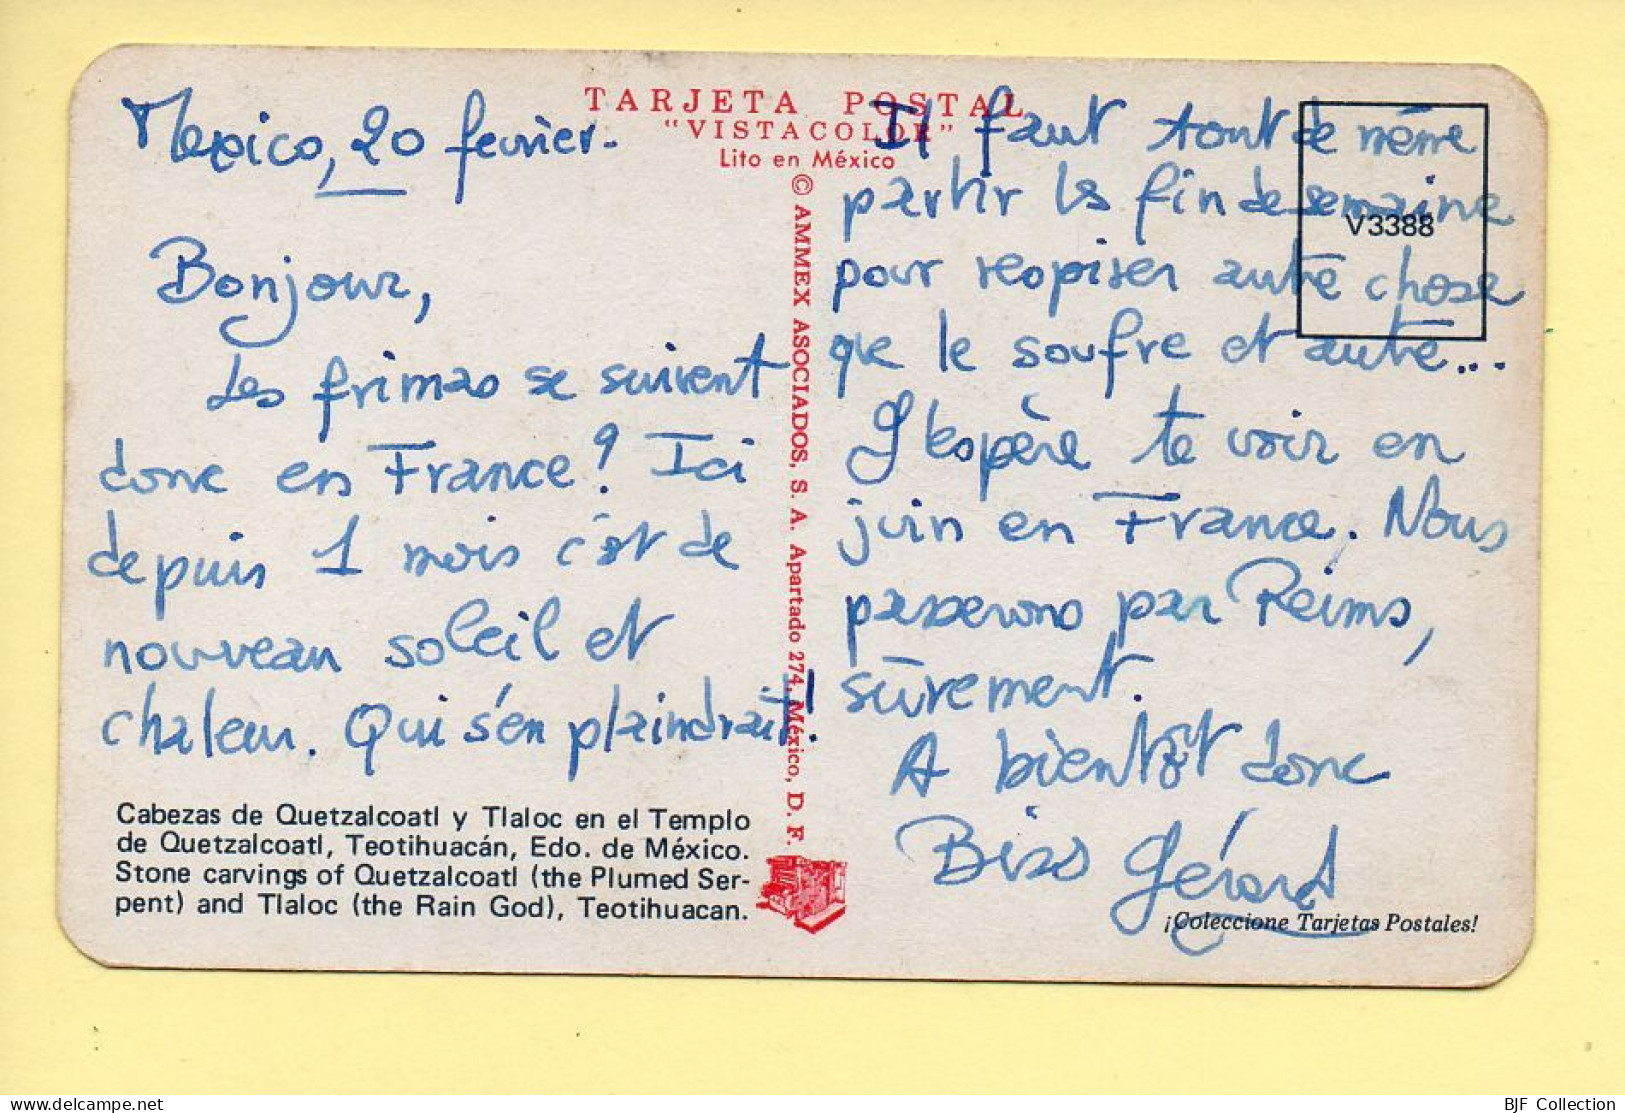 TARJETA POSTAL
"VISTACOLOR"
Lito en México
Mexico, 20 fevrier.
Bonjour,
Les frimas se suivent
donc en France? Ici
depuis 1 mois c'est de
nouveau soleil et
chaleur. Qui s'en plaindrait!
Cabezas de Quetzalcoatl y Tlaloc en el Templo
de Quetzalcoatl, Teotihuacán, Edo. de México.
Stone carvings of Quetzalcoatl (the Plumed Ser-
pent) and Tlaloc (the Rain God), Teotihuacan.
© AMMEX ASOCIADOS, S. A. Apartado 274, México, D. F.
V3388
Il faut tout de même
partir la fin de semaine
pour respirer autre chose
que le soufre et autre...
J'espère te voir en
juin en France. Nous
passerons par Reims,
sûrement.
A bientôt donc
Bises Gérard
¡Coleccione Tarjetas Postales!
BJF Collection